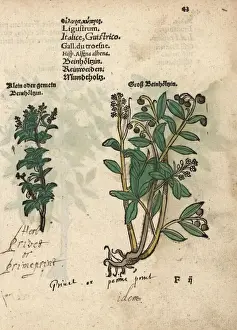 43
Ligustrum.
Italice, Guistrico.
Gall. du troesne.
Hisp. Alfena alhena.
Beinhöltzin.
Reinweiden.
Mundtholtz.
Klein oder gemein
Beinhöltzin.
Groß Beinhöltzin.
Herb
Privet
or
primeprint
Privet or prime print
idem
F ij